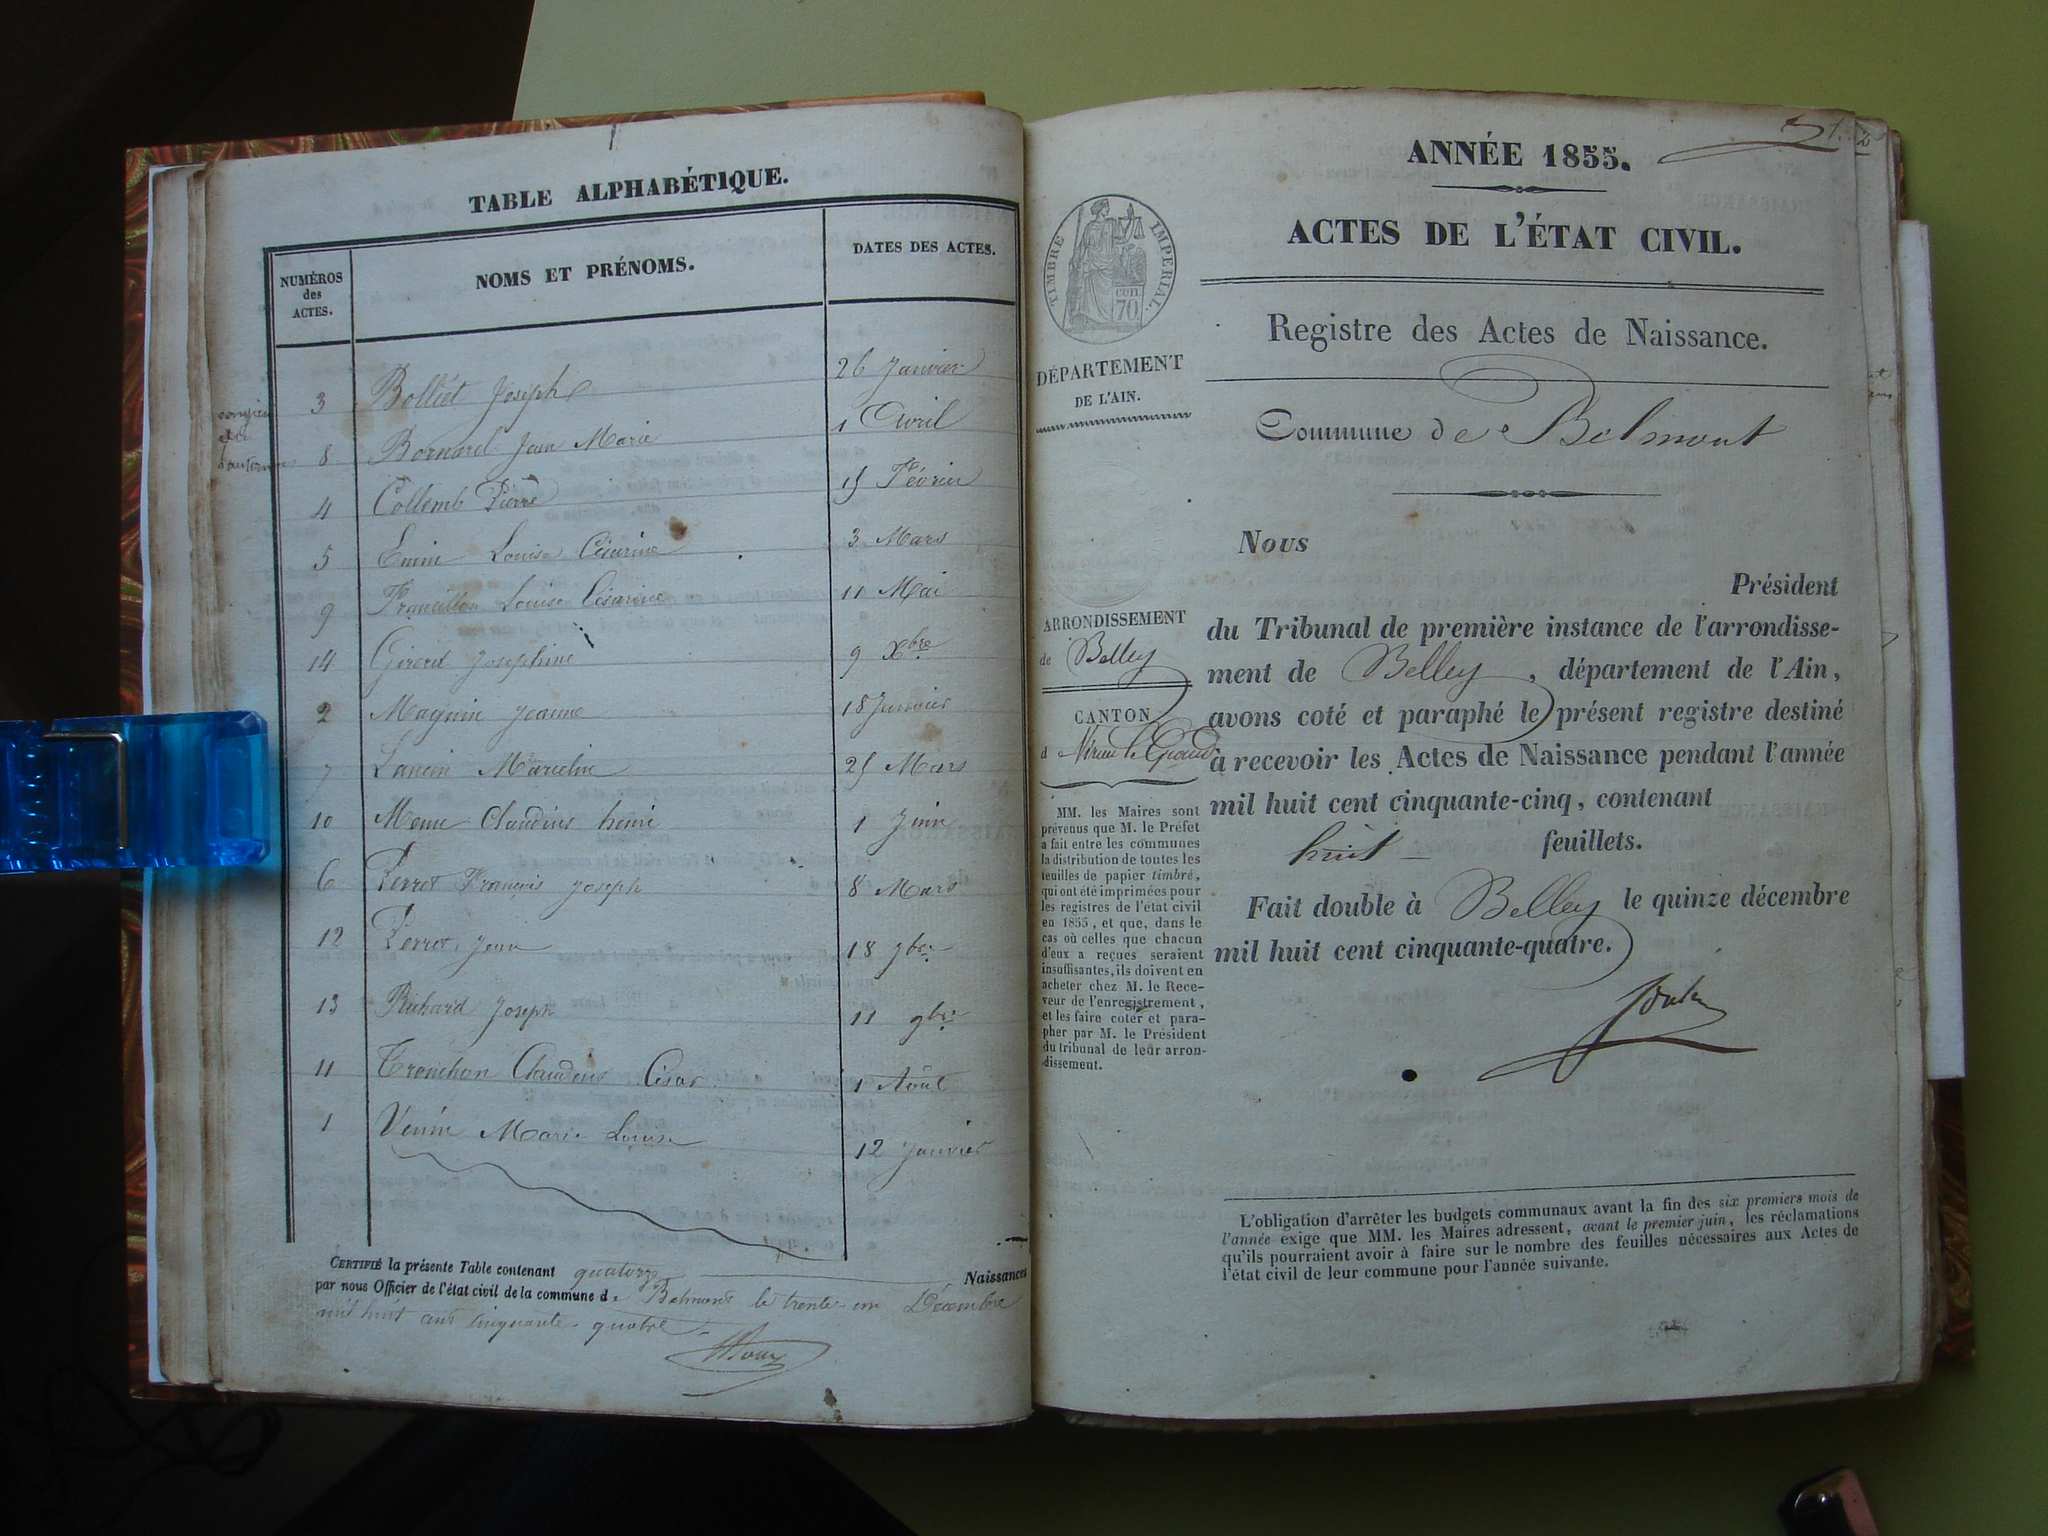 TABLE ALPHABÉTIQUE.
NUMÉROS des ACTES.
NOMS ET PRÉNOMS.
DATES DES ACTES.
3 Bolliet Joseph 26 Janvier
8 Bornard Jean Marie 1 Avril
4 Collomb Pierre 15 Février
5 Emin Louise Césarine 3 Mars
9 Francillon Louise Césarine 11 Mai
14 Girerd Josephine 9 Xbre
2 Magnin Jeanne 18 Janvier
7 Lancin Marcelin 25 Mars
10 Claudius henri 1 Juin
6 Perret François Joseph 8 Mars
12 Perret Jean 18 7bre
13 Richard Joseph 11 9bre
11 Tronchon Claudius César 1 Août
1 Venin Marie Louise 12 Janvier
CERTIFIÉ la présente Table contenant quatorze Naissances
par nous Officier de l'état civil de la commune de Belmont le trente un Décembre
mil huit cent cinquante quatre
ANNÉE 1855.
ACTES DE L'ÉTAT CIVIL.
TIMBRE IMPERIAL.
cen
70
Registre des Actes de Naissance.
DÉPARTEMENT
DE L'AIN.
Commune de Belmont
Nous
Président
du Tribunal de première instance de l'arrondisse-
ment de Belley, département de l'Ain,
avons coté et paraphé le présent registre destiné
à recevoir les Actes de Naissance pendant l'année
mil huit cent cinquante-cinq, contenant
huit feuillets.
Fait double à Belley le quinze décembre
mil huit cent cinquante-quatre.
ARRONDISSEMENT
de Belley
CANTON
d Virieu le Grand
MM. les Maires sont
prévenus que M. le Préfet
a fait entre les communes
la distribution de toutes les
feuilles de papier timbré,
qui ont été imprimées pour
les registres de l'état civil
en 1855, et que, dans le
cas où celles que chacun
d'eux a reçues seraient
insuffisantes, ils doivent en
acheter chez M. le Rece-
veur de l'enregistrement,
et les faire coter et para-
pher par M. le Président
du tribunal de leur arron-
dissement.
L'obligation d'arrêter les budgets communaux avant la fin des six premiers mois de
l'année exige que MM. les Maires adressent, avant le premier juin, les réclamations
qu'ils pourraient avoir à faire sur le nombre des feuilles nécessaires aux Actes de
l'état civil de leur commune pour l'année suivante.